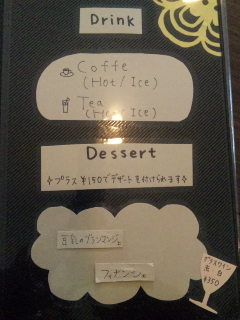 Drink
Coffe
(Hot/Ice)
Tea
(Hot/Ice)
Dessert
プラス¥150でデザートを付けられます
豆乳のブランマンジェ
フィナンシェ
グラスワイン
赤・白
¥350